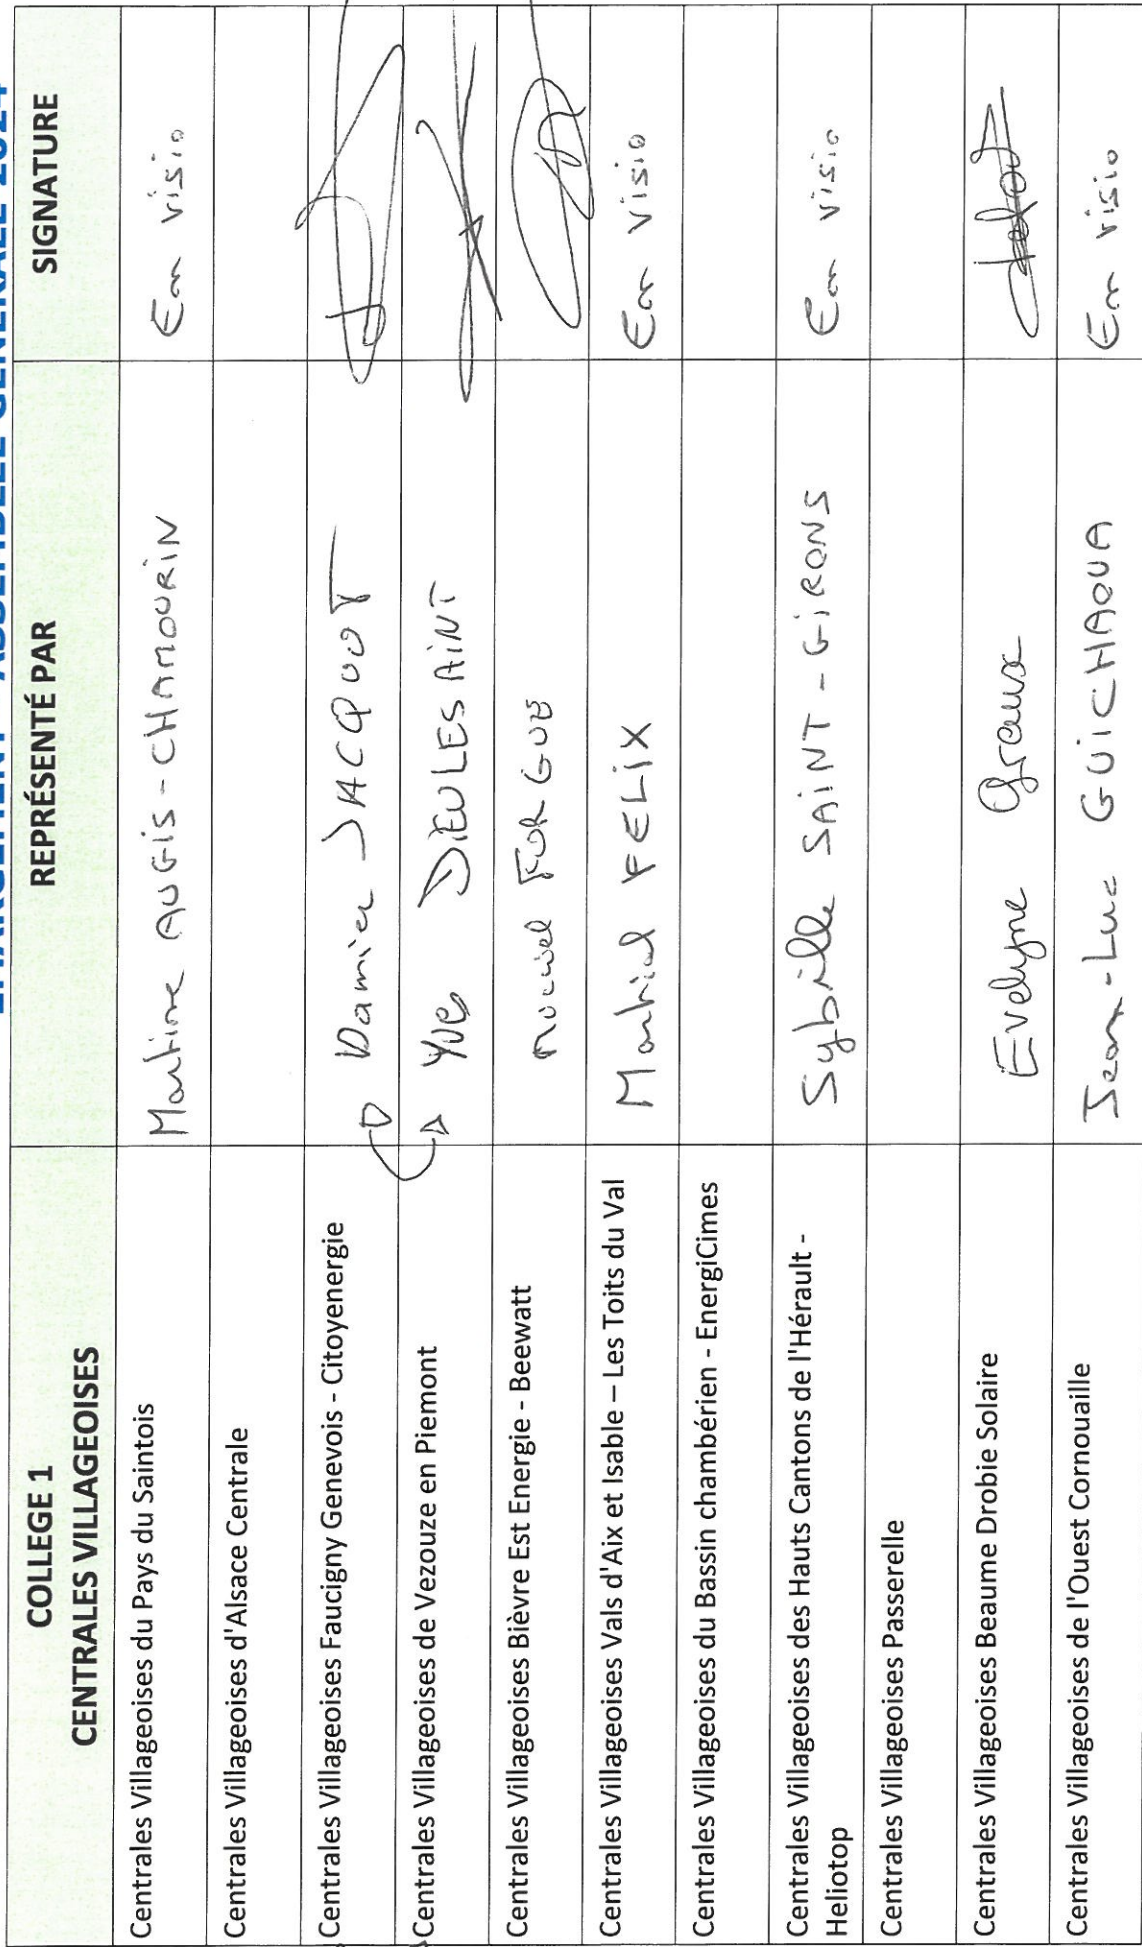 COLLEGE 1
CENTRALES VILLAGEOISES
REPRÉSENTÉ PAR
SIGNATURE
Centrales Villageoises du Pays du Saintois
Martine AUGIS-CHAMOURIN
En visio
Centrales Villageoises d'Alsace Centrale
Centrales Villageoises Faucigny Genevois - Citoyenergie
Damien JACQUOT
Centrales Villageoises de Vezouze en Piemont
Yve DIEULESAINT
Centrales Villageoises Bièvre Est Energie - Beewatt
FORGUE
Centrales Villageoises Vals d'Aix et Isable – Les Toits du Val
Martial FELIX
En visio
Centrales Villageoises du Bassin chambérien - EnergiCimes
Centrales Villageoises des Hauts Cantons de l'Hérault -
Heliotop
Sybille SAINT-GIRONS
En visio
Centrales Villageoises Passerelle
Centrales Villageoises Beaume Drobie Solaire
Evelyne Graux
Centrales Villageoises de l'Ouest Cornouaille
Jean-Luc GUICHAOUA
En visio